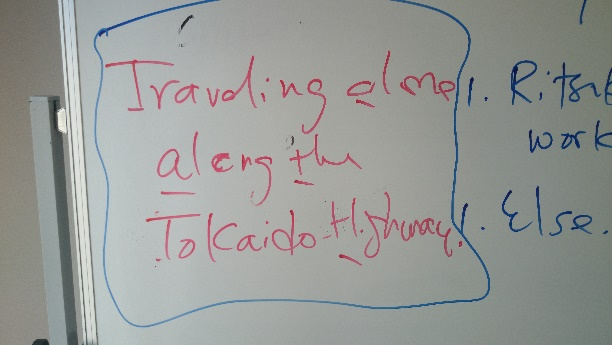 Traveling alone
along the
Tokaido Highway.
1. Rits
work
1. Else.